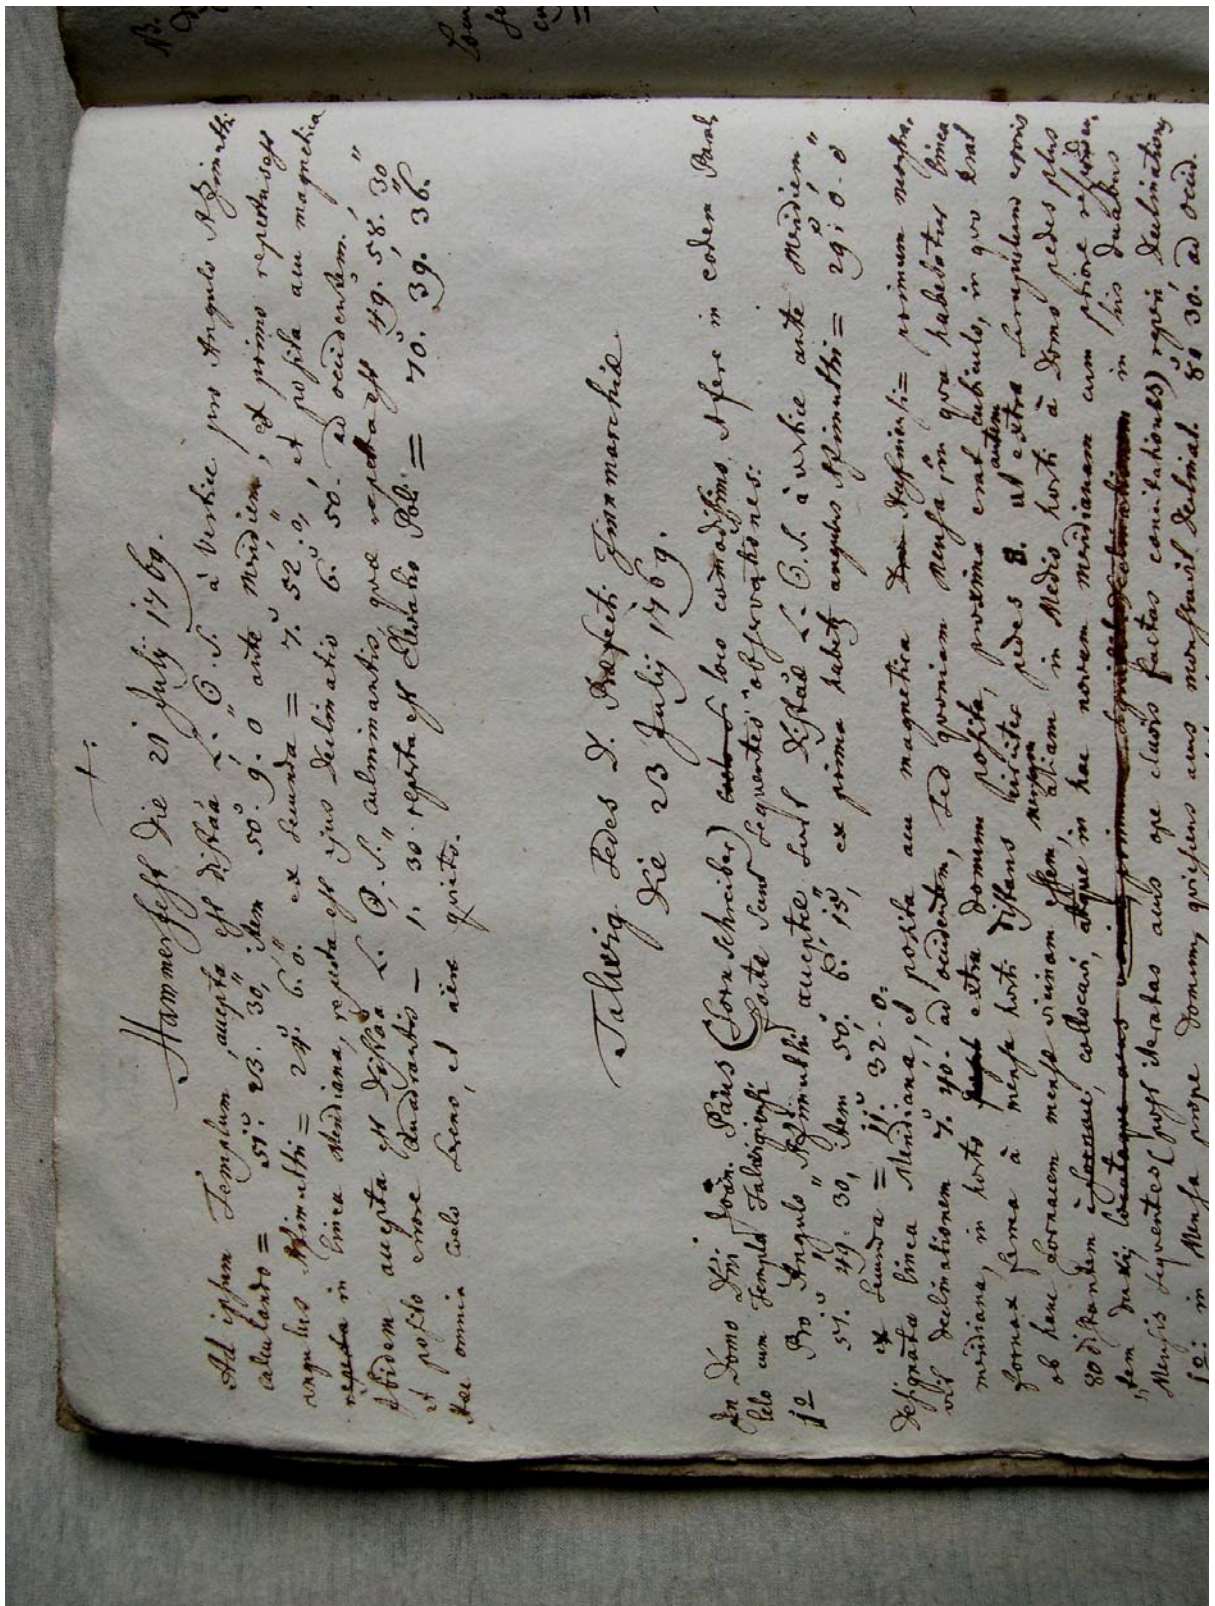 †.
Hammerfest Die 21 Julij 1769.
Ad ipsum Templum, accepta est distãa L. ☉. S. à Vertice pro Angulo Azimuthi
calculando = 51°. 23'. 30", item 50°. 9'. 0" ante Meridiem, ex primo repertus est
angulus Azimuthi = 24°. 6'. 0". ex secunda = 7°. 52'. 0", et posita acu magnetica
reperta in linea Meridiana, reperta est ejus declinatio 6°. 50'. ad occidentem.
Ibidem accepta est distãa L. ☉. S. culminantis, quæ reperta est 49°. 58'. 30"
et posito errore quadrantis – 1'. 30" reperta est Elevatio Poli = 70°. 39'. 36".
Hæc omnia coelo sereno, et aëre quieto.
Talwig Sedes D. Præfecti Finmarchiæ
Die 23 Julij 1769.
In Domo Dñi Joan. Paus (Sorenschreiber) loco commodissimo, et fere in eodem Paral,
lelo cum Templo Talwigiensi
factæ sunt sequentes observationes:
1º Pro Angulo Azimuthi acceptæ sunt distãæ L. ☉. S. à vertice ante Meridiem
51°. 49'. 30", item 50°. 6'. 15", ex prima habetur angulus Azimuthi = 29°. 0'. 0"
ex secunda = 11°. 32'. 0".
designata linea Meridiana, et posita acu magnetica primum monstra,
vit declinationem 7°. 40'. ad occidentem, sed quoniam Mensa, in qua habebatur linea
meridiana, in horto extra domum posita, proxima erat cubiculo, in quo erat
fornax ferrea à mensa horti distans circiter pedes 8. ut autem extra scrupulum erroris
ob hanc fornacem mensæ vicinam essem, mensam aliam in Medio horti à Domo pedes plus
80 distantem à fornace, collocavi, atque in hac novem meridianam cum priore
tem duxi; locataque acus in his duabus
Mensis sequentes (post iteratas acus ope clavis factas concitationes) reperi declinationes
1º: in Mensa prope domum, quiescens acus monstravit declinat. 8° 30'. ad occid.